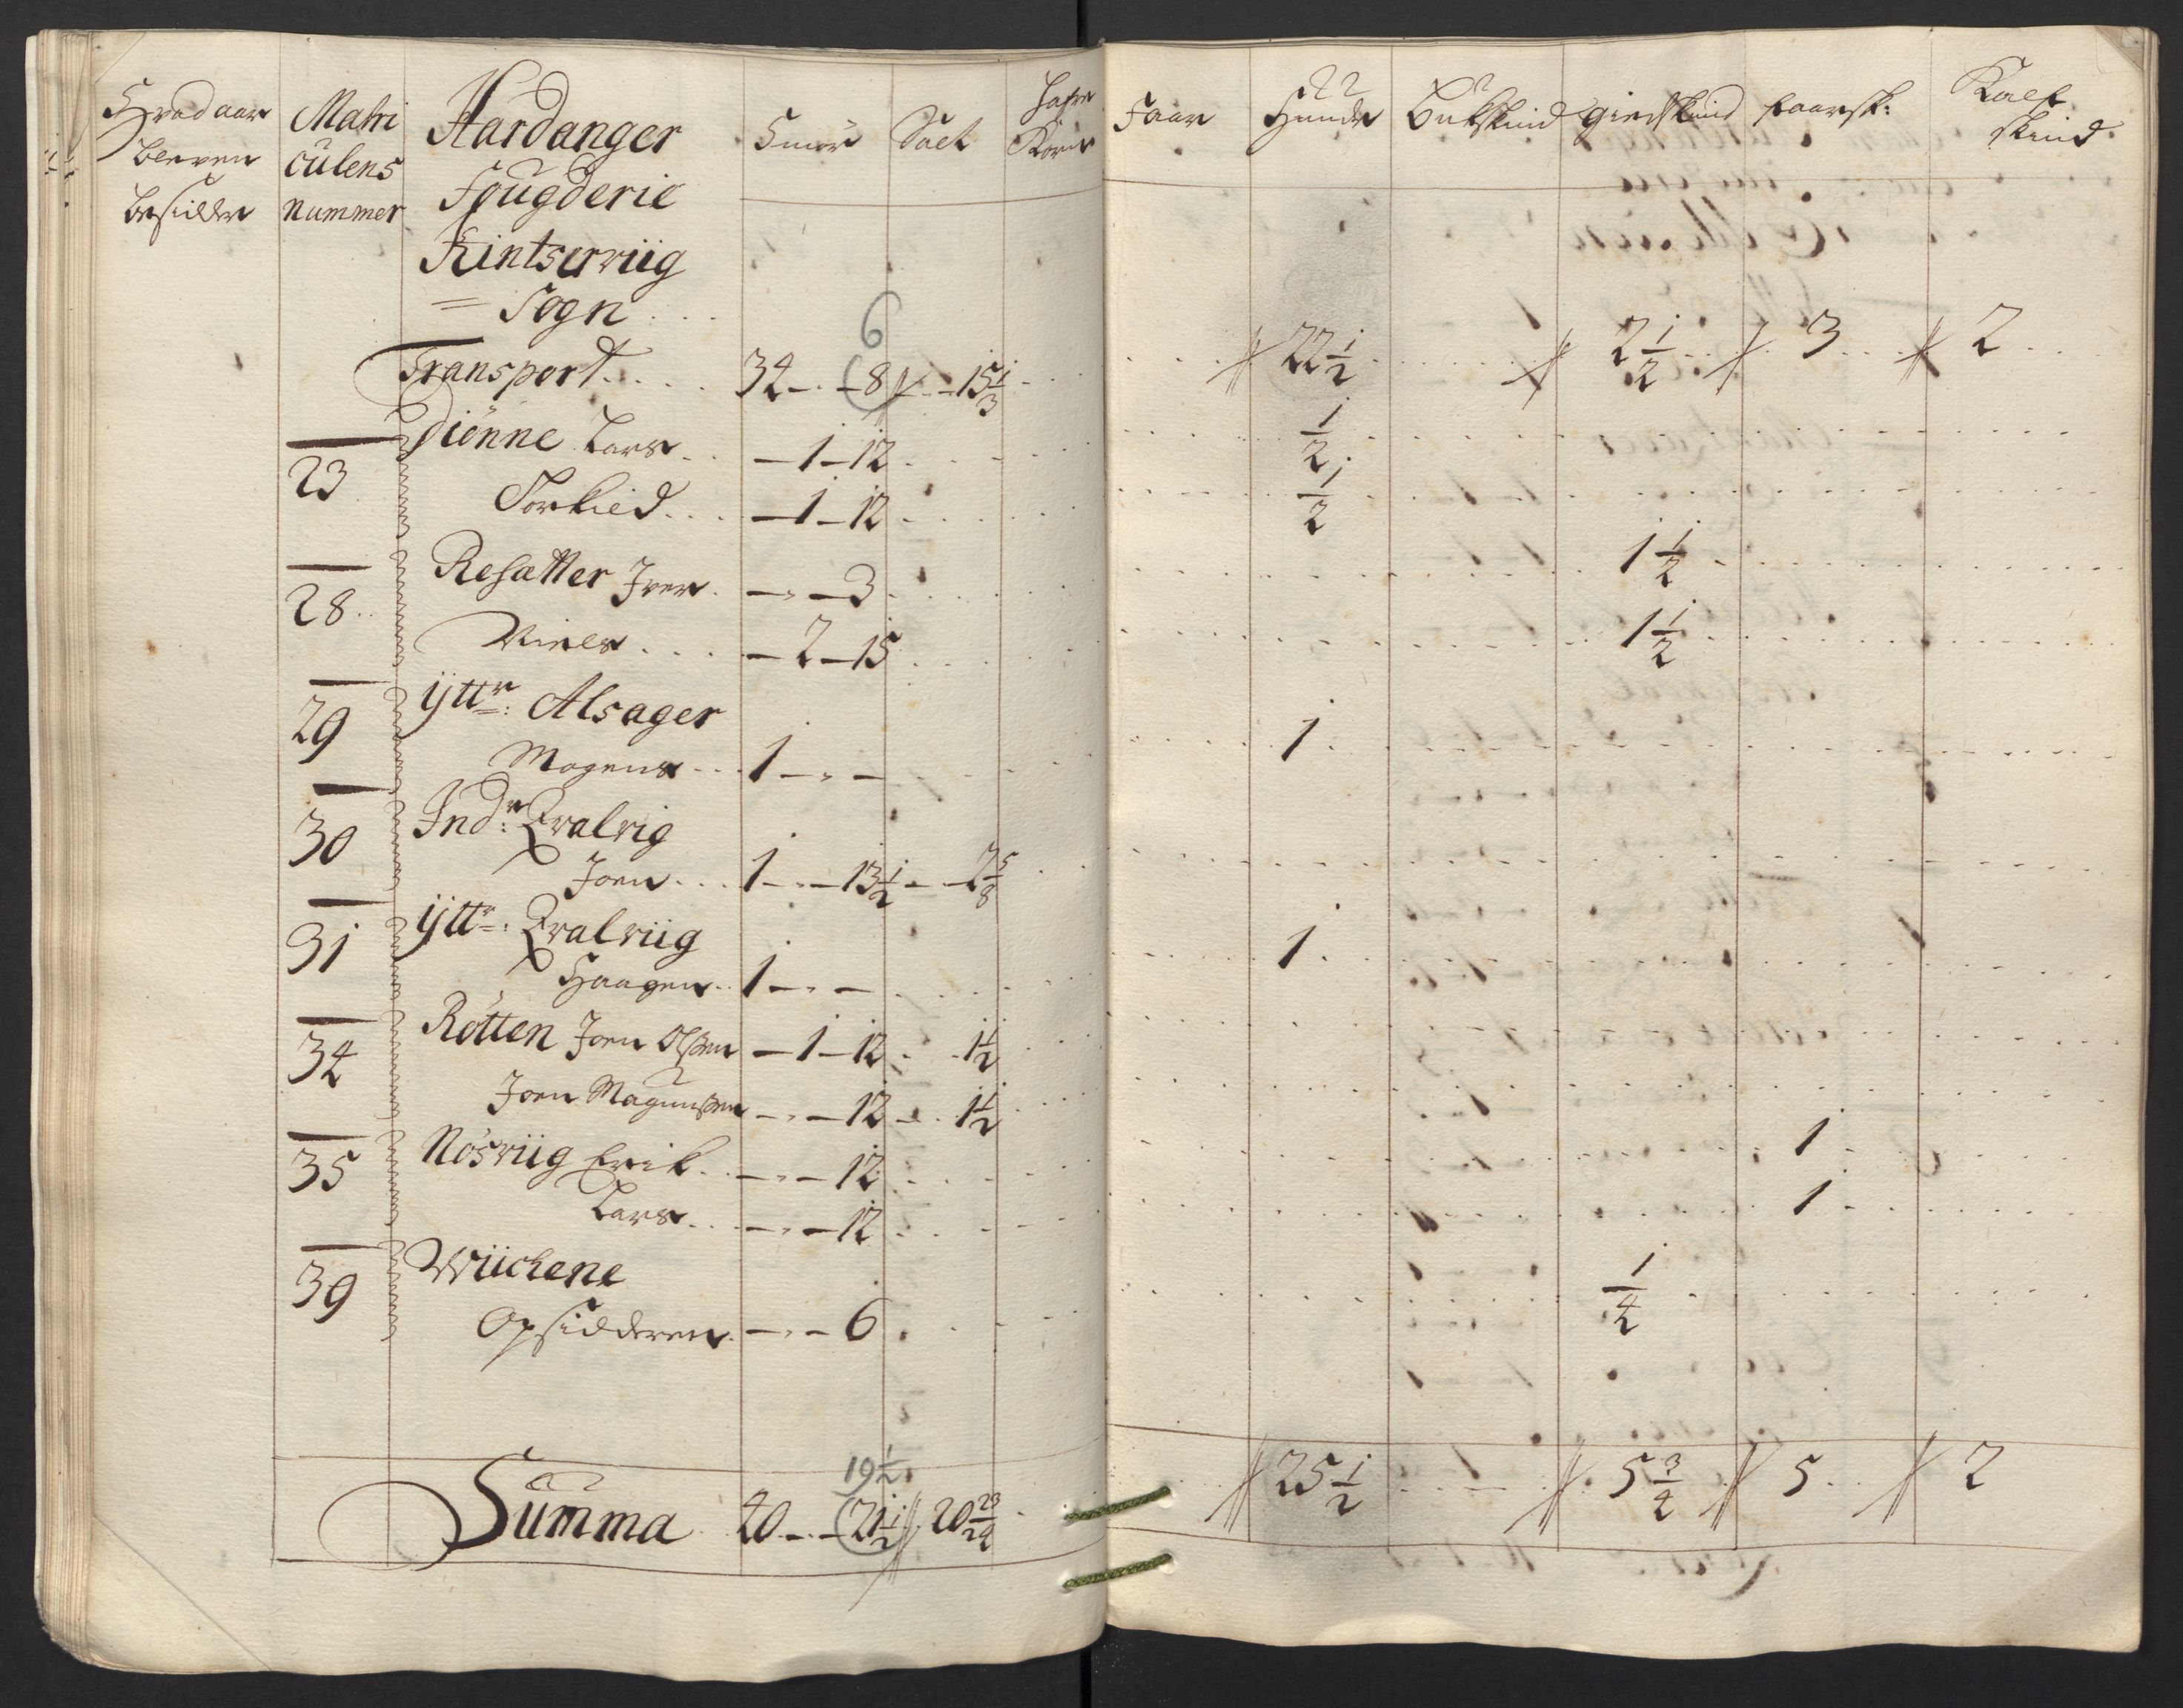 Hvad aar
bleven
besidder
Matri
culens
nummer
Hardanger
Fougderie
Kintserviig
= Sogn
Smør
Salt
Hafre
Korn
Faar
Huude
Bukskind
giedskind
faarsk:
Kalf
skind
Transport 34 - - 8 - 15 1/3 22 1/2 2 1/2 3 2
6
23 Diönne Lars - 1 - 12 1/2
Torkied - 1 - 12 1/2
28 Resatter Iver - - 3 1 1/2
Niels - 2 - 15 1 1/2
29 Ÿttr: Alsager
Mogens 1 - - 1
30 Indr: Qvalvig
Joen 1 - - 13 1/2 - 2 5/8
31 Ÿttr: Qvalviig
Haagen 1 - - 1
34 Rötten Joen Olsen - 1 - 12 1 1/2
Joen Magunsen - - 12 1 1/2
35 Nösviig Erik - - 12 1
Lars - - 12 1
39 Wiichene
Opsidderen - - 6 1/4
19 1/2
Summa 40 - - 21 1/2 20 23/24 25 1/2 5 3/4 5 2